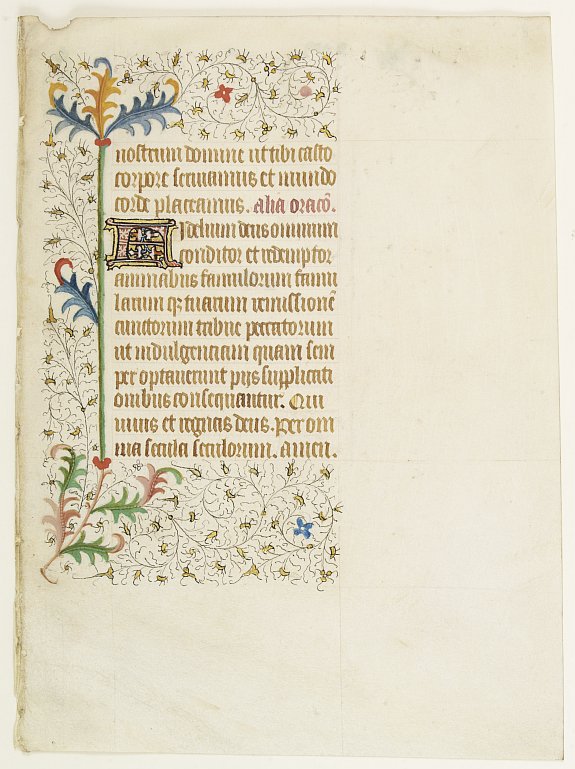 nostrum domine ut tibi casto
corpore seruiamus et mundo
corde placeamus. Alia oracō.
Fidelium deus omnium
conditor et redemptor
animabus famulorum famu
larum qȝ tuarum remissionē
cunctorum tribue peccatorum
ut indulgentiam quam sem
per optauerunt pijs supplicati
onibus consequantur. Qui
uiuis et regnas deus. Per om
nia secula seculorum. amen.